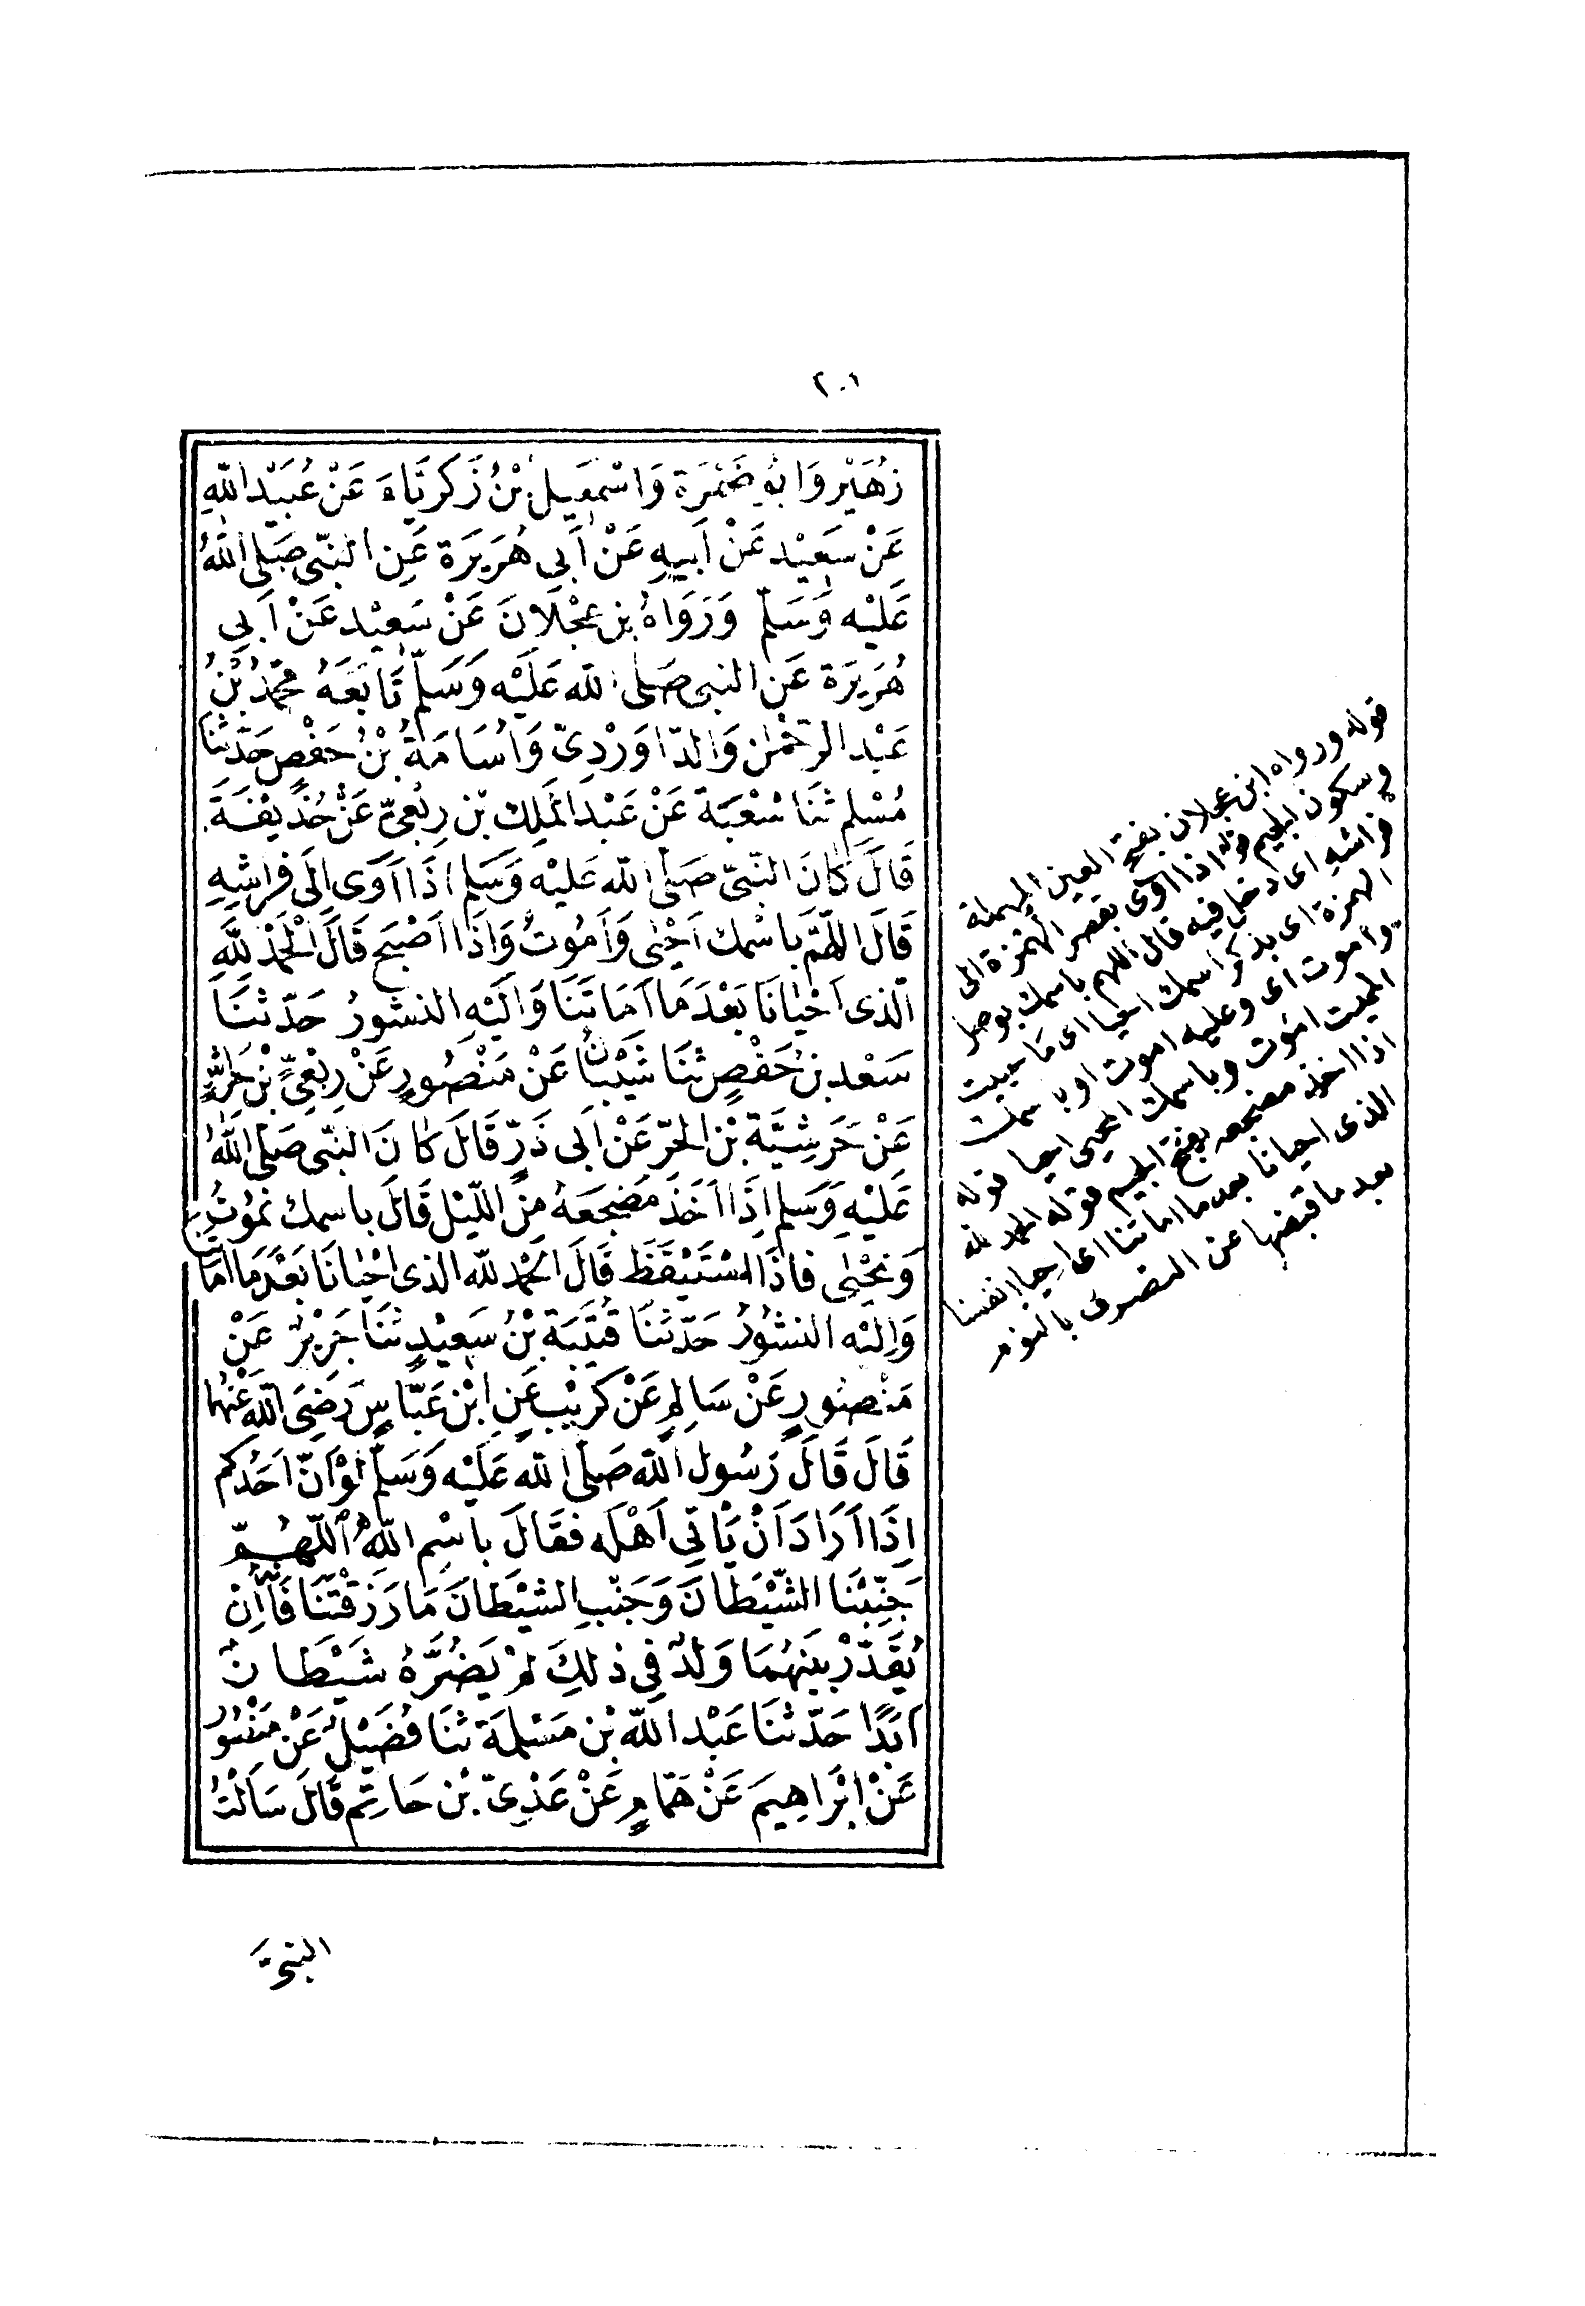 ٢٠١
زُهَيْر وَابُو ضَمْرَة وَاسْمعيل بْنُ زَكَرِيَّاءَ عَنْ عُبَيْد اللّهِ
عَنْ سَعِيْد عَنْ اَبيهِ عَنْ اَبِي هُرَيرَة عَنِ النبّى صَلى اللّهُ
عَلَيْه وَسَلّم وَرَوَاهُ بن عجْلَانَ عَنْ سَعِيْد عَنْ اَبِي
هُرَيرَة عَن النبى صَلى الله عَلَيْه وَسَلّم تَابَعَهُ محمّدُ بْنُ
عَبْد الرّحْمٰن وَالدّاوَرْدِىّ وَاُسَامَةُ بْنُ حَفْصٍ حَدّثنَا
مُسْلم ثنَا شعْبَة عَنْ عَبْد المَلِك بْن رِبْعىّ عَنْ حُذَيْفَة
قَالَ كَانَ النّبىّ صَلى الله عَليْه وَسَلم اذَا اَوَى اِلَى فِرَاشِهِ
قَالَ اللّهمّ باسْمك اَحْيٰى وَاَمُوتُ وَاذَا اَصْبَح قَالَ الْحَمْد للّهِ
الّذى اَحْيانَا بَعْدَ مَا اَمَاتَنَا وَالَيْهِ النشورُ حَدّثنَا
سَعْد بنُ حَفْصٍ ثنَا شَيْبَانُ عَنْ مَنْصُورٍ عَنْ رِبْعِىّ بْن حَرَاشٍ
عَنْ خَرَشِيَّة بْن الحرّ عَنْ اَبى ذَرّ قَالَ كانَ النبّى صَلى اللّهُ
عَلَيْهِ وَسَلم اِذَا اَخَذَ مَضْجَعَهُ مِنَ اللَّيْل قَالَ باسمك نَمُوتُ
وَنَحْيٰى فاذَا اسْتَيْقَظَ قَالَ الحمْد للّه الذى احْيانَا بَعْدَ مَا اَمَاتَنَا
وَاِليْه النشُورُ حَدّثنَا قُتَيْبَة بْنُ سَعيْدٍ ثنَا جَرِيْرٌ عَنْ
مَنْصُورٍ عَنْ سَالِمٍ عَنْ كرَيْبٍ عَنِ ابْن عَبّاسٍ رَضِىَ اللّه عَنْهما
قَالَ قَالَ رَسُول اللّه صَلّى الله عَلَيْه وَسَلّم لَوْ اَنّ اَحَدُكم
اِذَا اَرَادَ اَنْ يَأتِى اَهْلَه فقَالَ باسْم اللّهُ اَللّهُمّ
جَنِّبْنَا الشّيْطَانَ وَجَنّبِ الشيْطَانَ مَا رَزَقْتَنَا فَاِنّهُ اِنْ
يُقَدّرْ بَيْنَهُمَا وَلَدٌ فى ذلِكَ لمْ يَضُرَّهُ شَيْطَانٌ
اَبَدًا حَدّثنَا عَبْد اللّه بْن مَسْلمَة ثنَا فُضَيْلٌ عَنْ مَنْصُور
عَنْ ابْرَاهِيمَ عَنْ هَمّامٍ عَنْ عَدِىّ بْن حَاتِم قَالَ سَاَلْتُ
النبىَّ
قوله ورواه ابن عجلان بفتح العين المهملة
وسكون الجيم قوله اذا اوى بقصر الهمزة الى
فراشه اى دخل فيه قال اللهم باسمك بوصل
الهمزة اى بذكر اسمك احيا اى ما حييت
واموت اى وعليه اموت او باسمك
المميت اموت وباسمك المحيى احيا قوله
اذا اخذ مضجعه بفتح الجيم قوله الحمد لله
الذى احيانا بعد ما اماتنا اى احيا انفسنا
بعد ما قبضها عن التصرف بالنوم